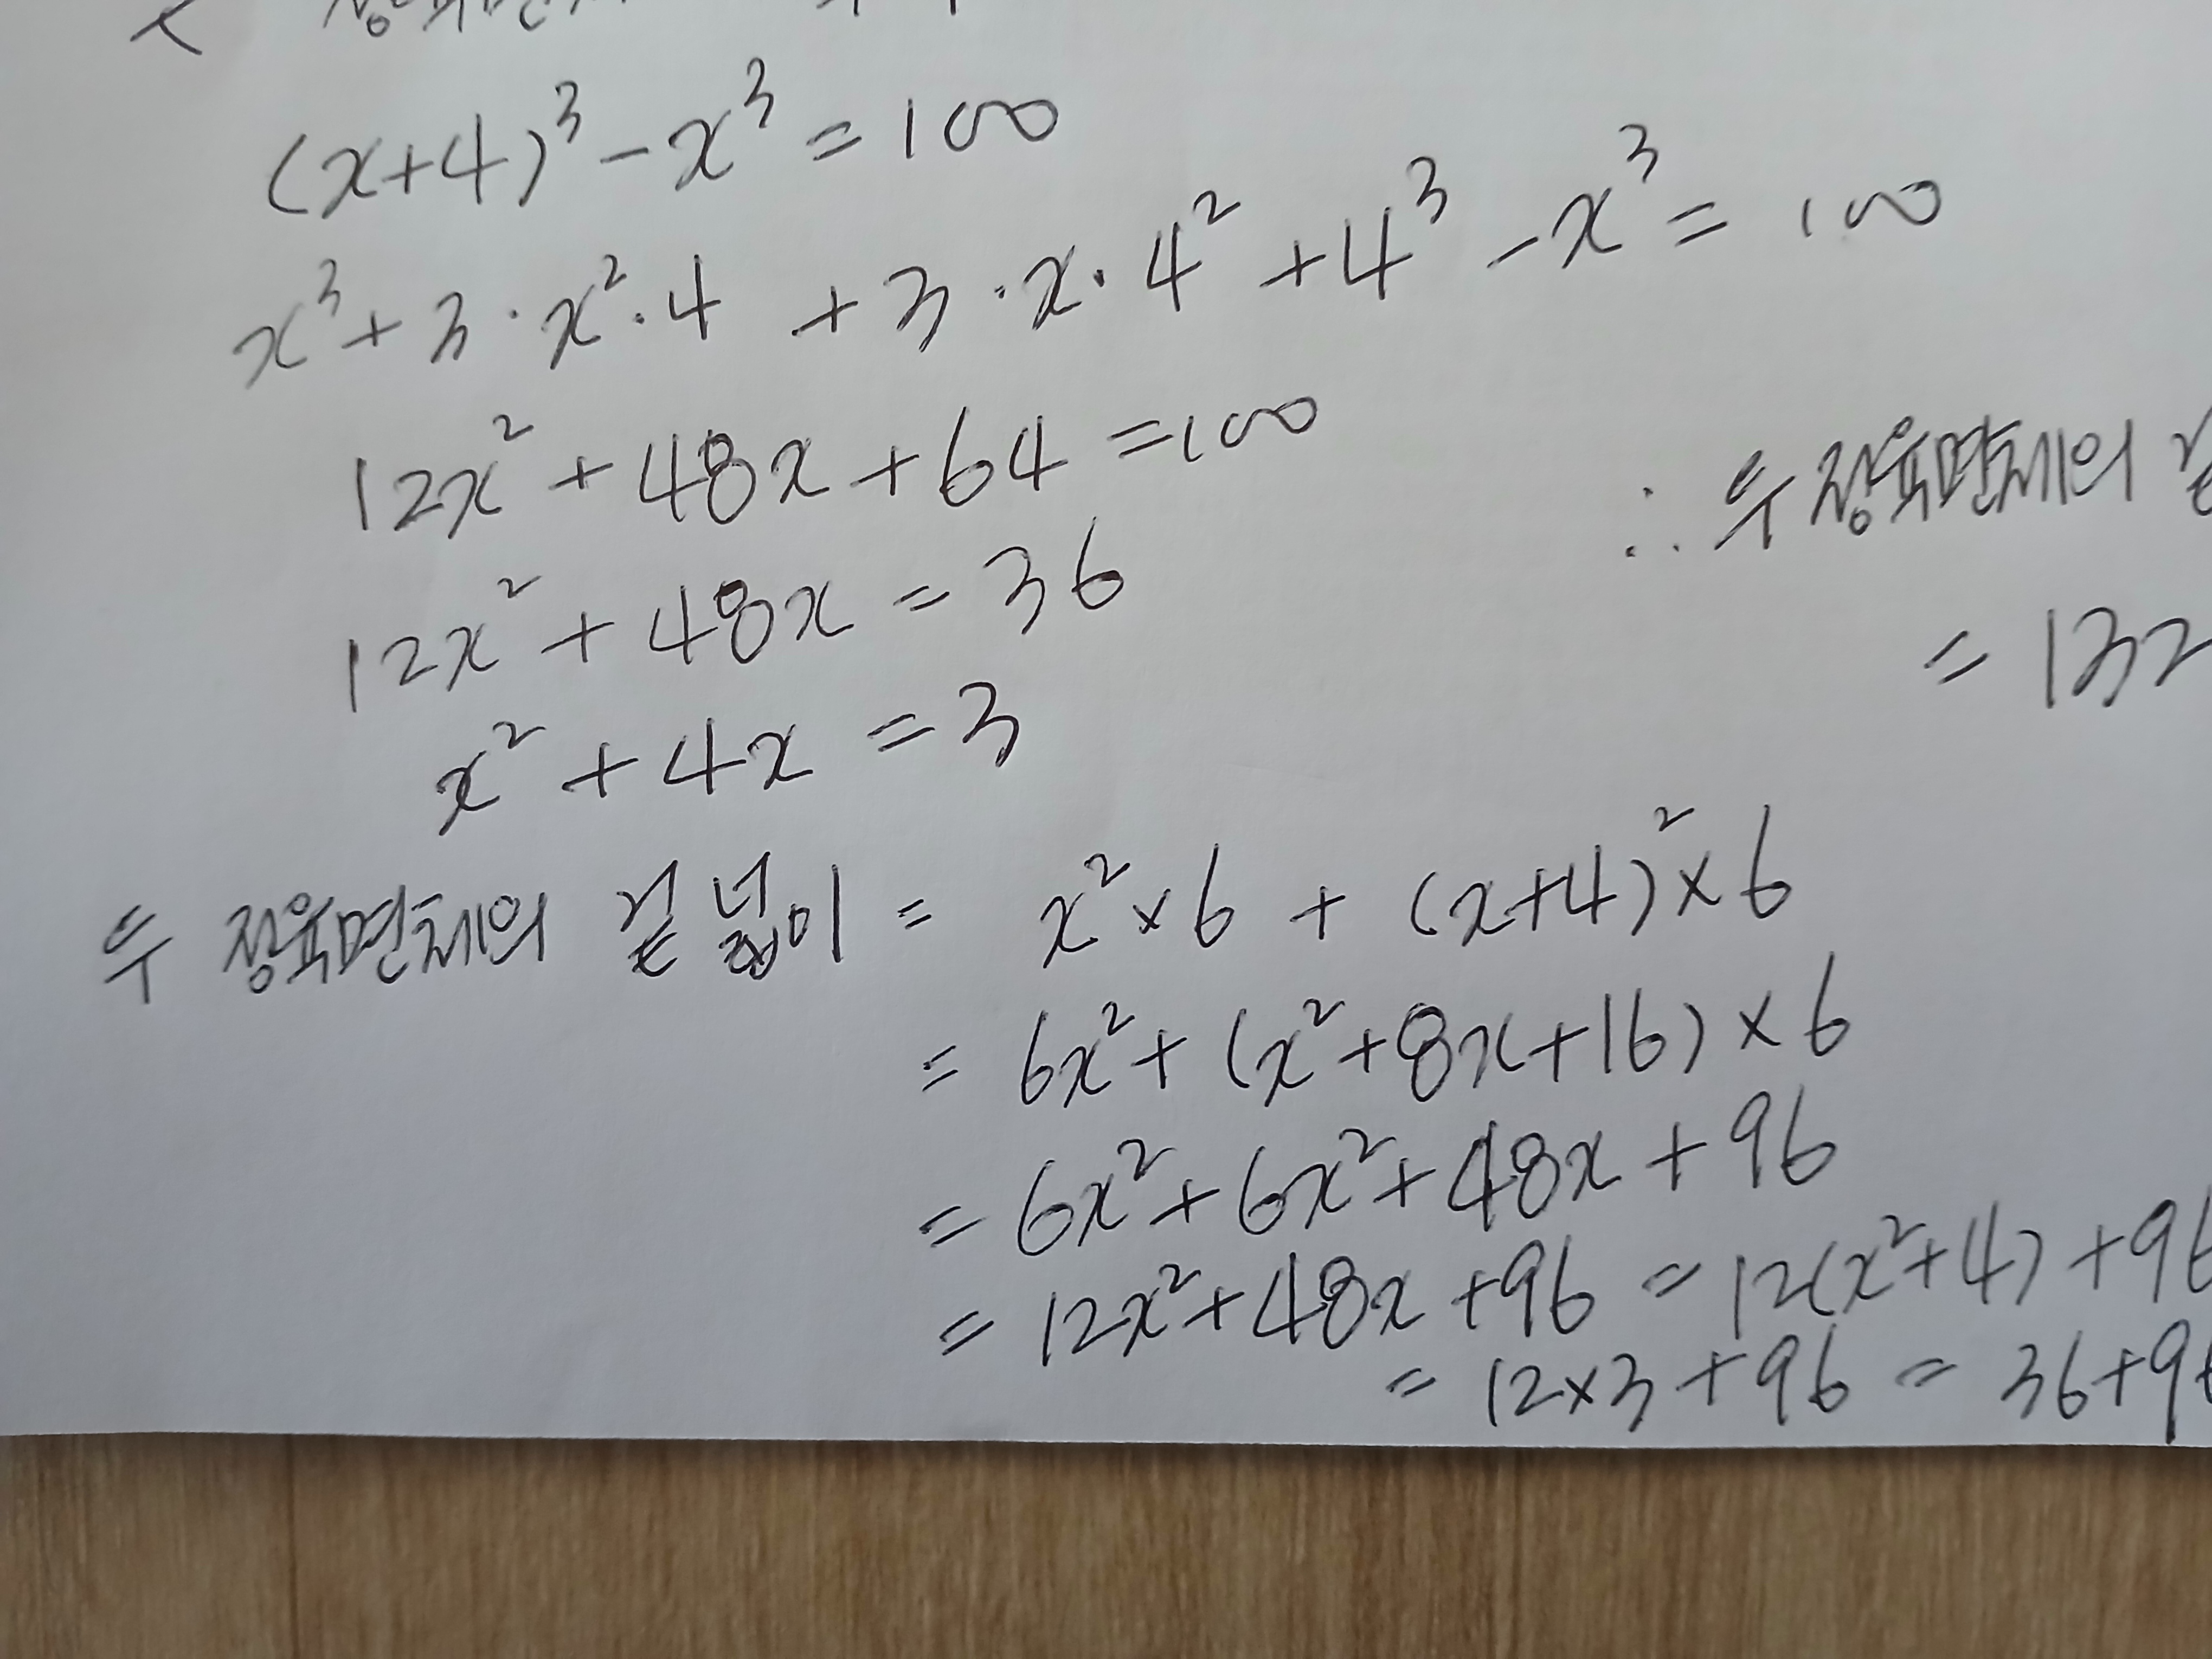 (x+4)³-x³=100
x³+3·x²·4 +3·x·4²+4³-x³=100
12x²+48x+64=100
12x²+48x=36
x²+4x=3
∴ 두 정육면체의
=132
두 정육면체의 겉넓이 = x²×6+(x+4)²×6
=6x²+(x²+8x+16)×6
=6x²+6x²+48x+96
=12x²+48x+96=12(x²+4)+96
=12×3+96=36+96